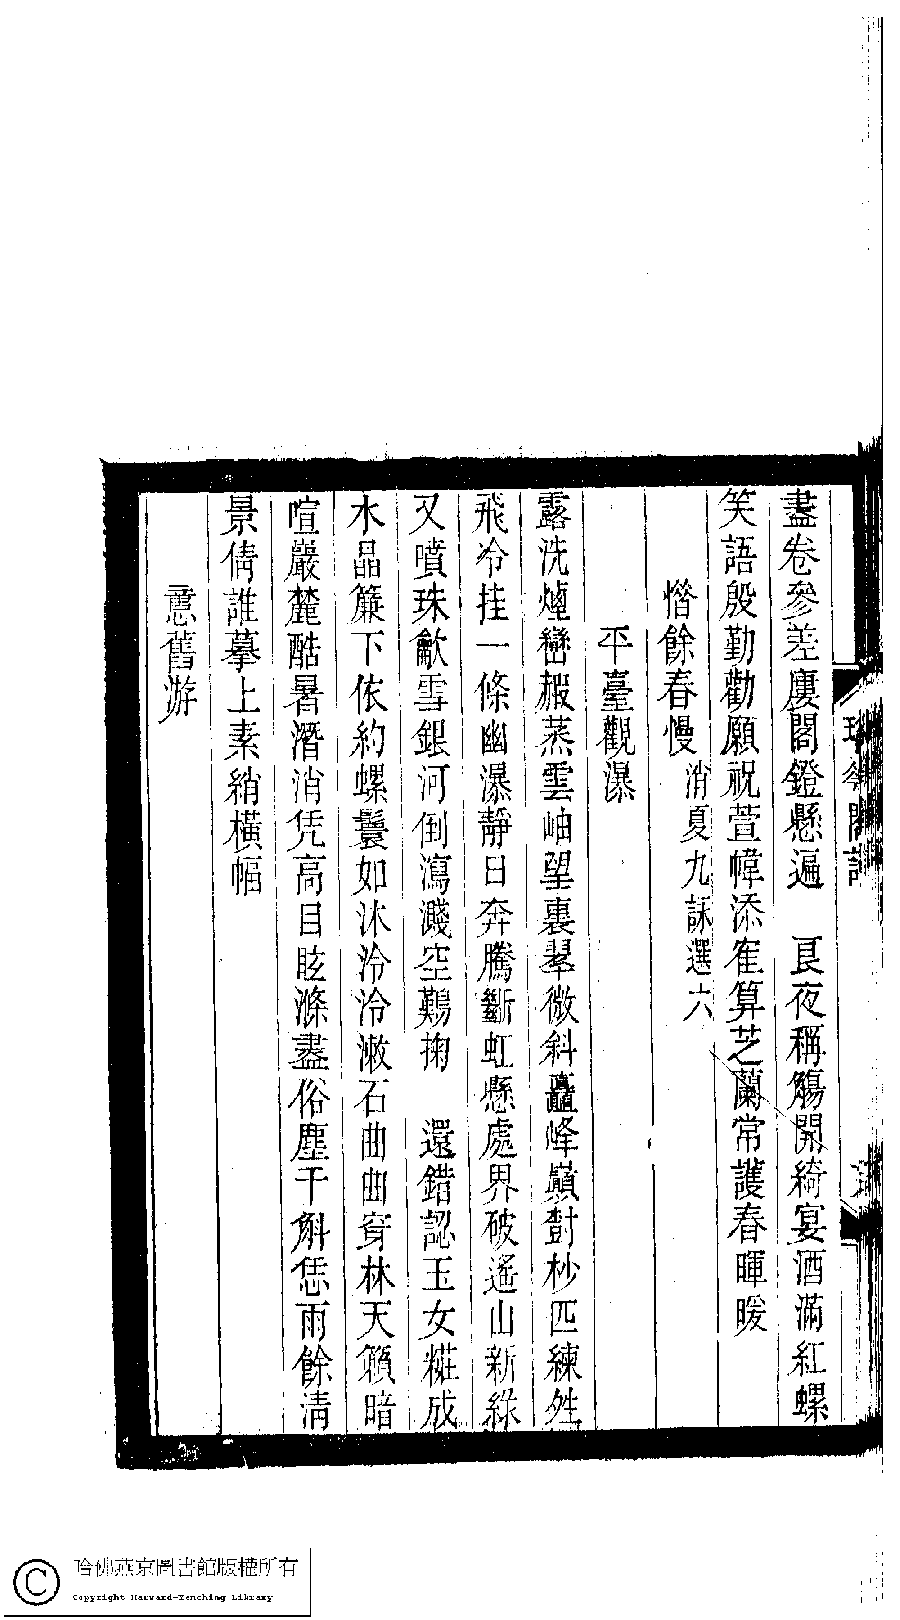 盡卷參差廔閣鐙懸遍　良夜稱觴開綺宴酒滿紅螺
笑語殷勤勸願祝萱幃添隺算芝蘭常護春暉暖
惜餘春慢　消夏九詠選六
平臺觀瀑
露洗煙巒赮蒸雲岫望裏翠微斜矗峰巔尌杪匹練
飛冷挂一條幽瀑靜日奔騰斷虹懸處界破遙山新綠
又噴珠歕雪銀河倒瀉濺空難掬　還錯認玉女糚成
水晶簾下依約螺鬟如沐泠泠潄石曲曲穿林天籟暗
喧巖麓酷暑潛消凭高目眩滌盡俗塵千斛恁雨餘清
景倩誰摹上素綃橫幅
憶舊游
哈佛燕京圖書館版權所有
Copyright Harvard-Yenching Library